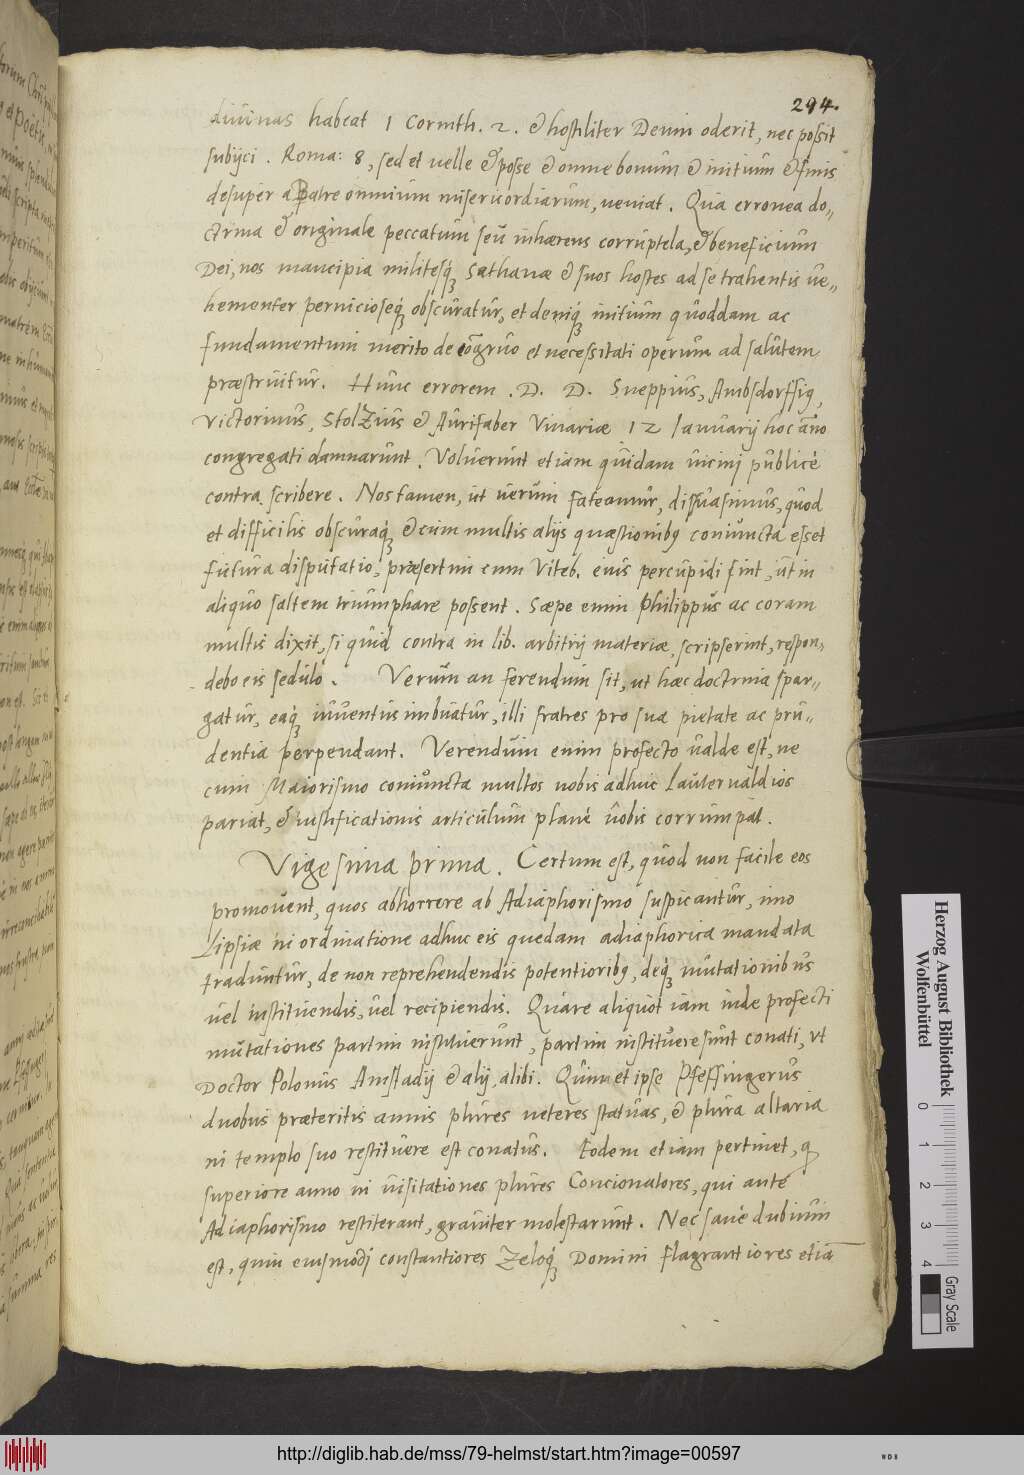 294.
diuinas habeat 1 Corinth. 2. & hostiliter Deum oderit, nec possit
subijci. Roma: 8, sed et uelle & posse & omne bonum & initium & finis
desuper a Patre omnium misericordiarum, ueniat. Qua erronea do„
ctrina & originale peccatum seu inhærens corruptela, & beneficium
Dei, nos mancipia militesq́ꝫ Sathanæ & suos hostes ad se trahentis ue„
hementer pernicioseq́ꝫ obscuratur, et deniq́ꝫ initium quoddam ac
fundamentum merito de cõgruo et necessitati operum ad salutem
præstruitur. Hunc errorem .D. D. Sneppius, Ambsdorffig,
Victorinus, Stolzius & Aurifaber Vinariæ 12 Ianuarij hoc año
congregati damnarunt. Voluerunt etiam quidam uicini publicè
contra scribere. Nos tamen, ut uerum fateamur, disuasimus, quod
et difficilis obscuraq́ꝫ & cum multis alijs quæstionibꝰ coniuncta esset
futura disputatio, præsertim cum Viteb. eius percupidi sint, ut in
aliquo saltem triumphare possent. Sæpe enim Philippus ac coram
multis dixit, si quid contra in lib. arbitrij materiæ, scripserint, respon„
debo eis sedulò. Verum an ferendum sit, ut hæc doctrina spar„
gatur, eaq́ꝫ iuuentus imbuatur, illi fratres pro sua pietate ac pru„
dentia perpendant. Verendum enim profecto ualde est, ne
cum Maiorismo coniuncta multos nobis adhuc Lauterualdios
pariat, & iustificationis articulum planè nobis corrumpat.
Vigesima prima. Certum est, quod non facile eos
promouent, quos abhorrere ab Adiaphorismo suspicantur, imo
Lipsiæ in ordinatione adhuc eis quedam adiaphorica mandata
traduntur, de non reprehendendis potentioribꝰ, deq́ꝫ mutationibus
uel instituendis, uel recipiendis. Quare aliquot iam inde profecti
mutationes partim instituerunt, partim instituere sunt conati, ut
Doctor Polonus Amstadij & alij, alibi. Quin et ipse Pfeffingerus
duobus præteritis annis plures ueteres statuas, & plura altaria
in templo suo restituere est conatus. Eodem etiam pertinet, q̃
superiore anno in uisitationes plures Concionatores, qui antè
Adiaphorismo restiterant, grauiter molestarunt. Nec sanè dubium
est, quin eiusmodi constantiores Zeloq́ꝫ Domini flagrantiores etiã
Herzog August Bibliothek
Wolfenbüttel
0 1 2 3 4
Gray Scale
http://diglib.hab.de/mss/79-helmst/start.htm?image=00597
WDB